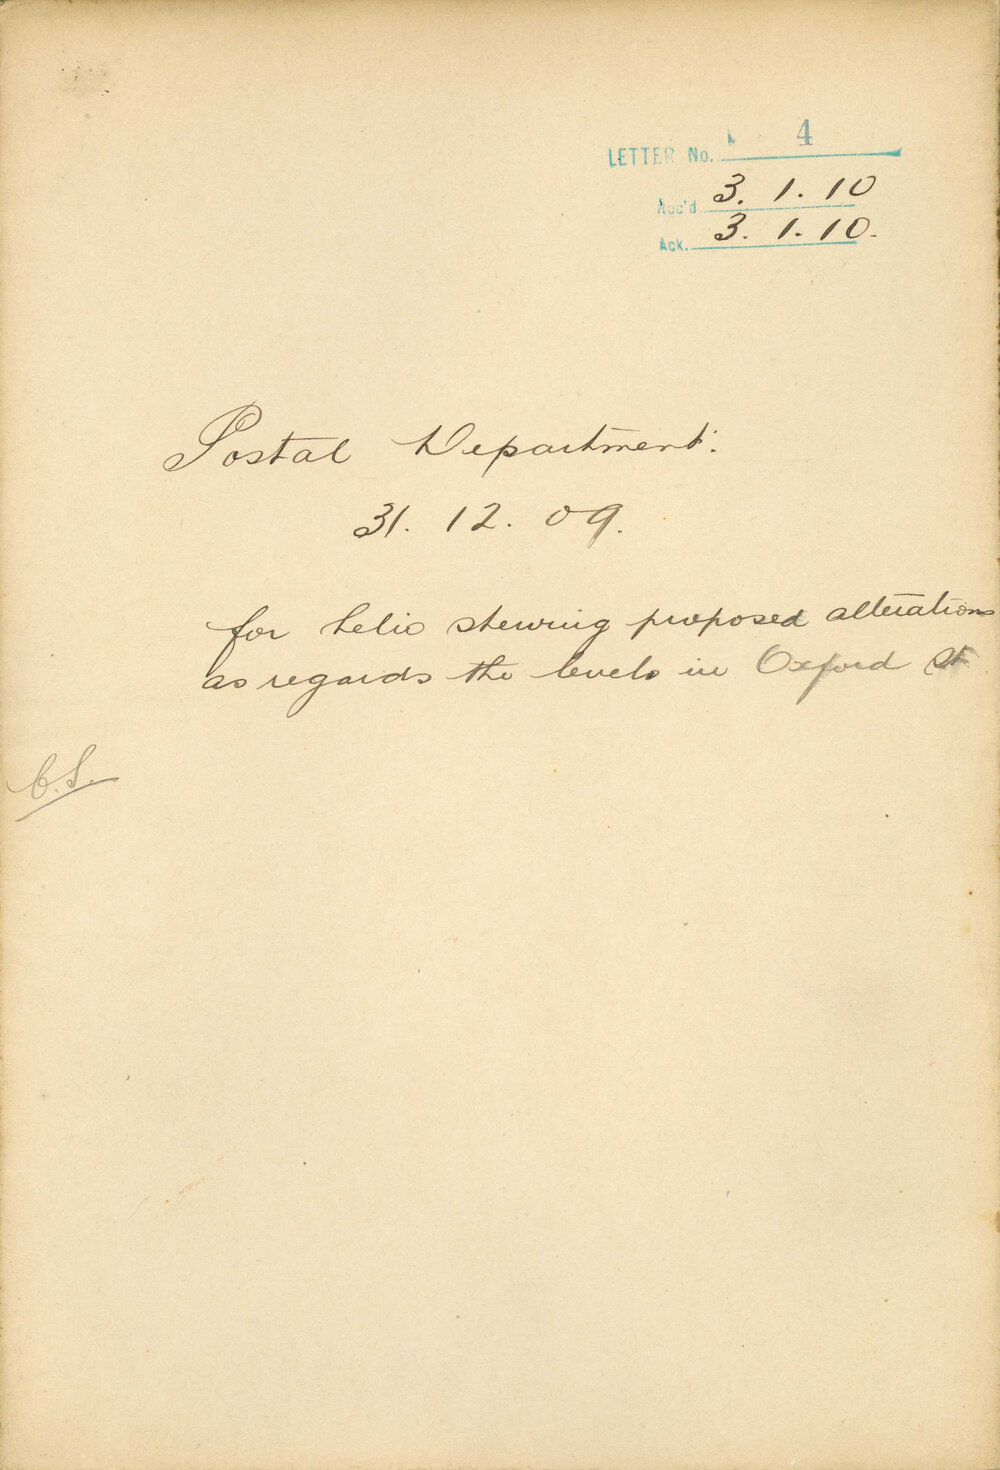 LETTER No. 4
Rec'd 3. 1. 10
Ack. 3. 1. 10.
Postal Department.
31. 12. 09.
for helio shewing proposed alterations
as regards the levels in Oxford St
C.S.